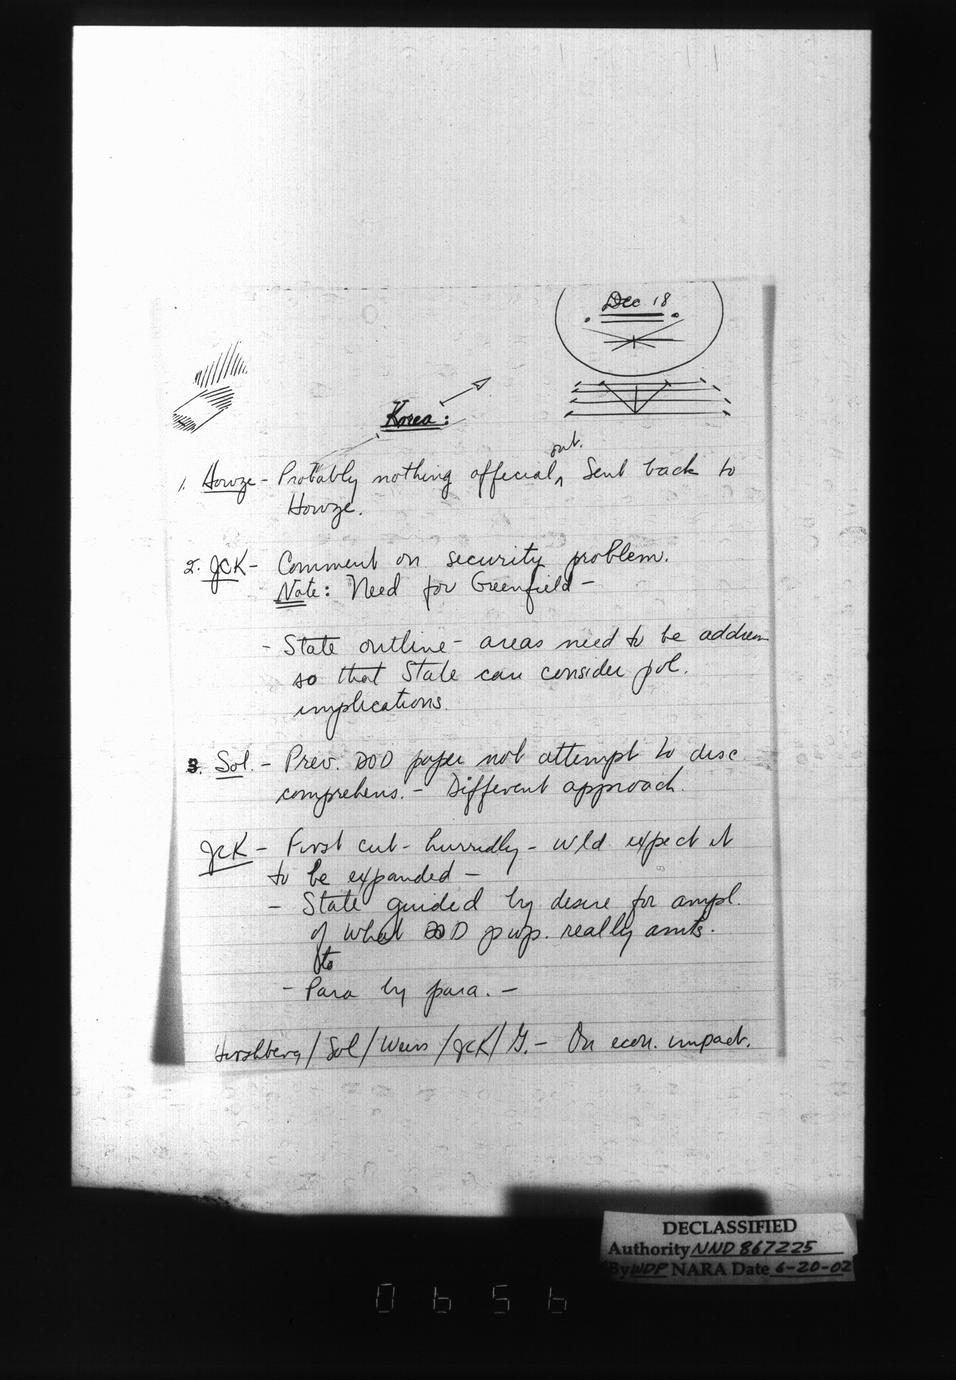 Dec 18
Korea:
out.
1. Howze - Probably nothing official, Sent back to
Howze.
2. JCK - Comment on security problem.
Note: Need for Greenfield -
- State outline - areas need to be addres
so that State can consider pol.
implications.
3. Sol. - Prev. DOD paper not attempt to disc
comprehens. - Different approach.
JCK - First cut - hurriedly - wld expect it
to be expanded -
- State guided by desire for ampl.
of what DOD prop. really amts.
to
- Para by para. -
Hirshberg / Sol / Weiss / JCK / G. - On econ. impact.
DECLASSIFIED
Authority NND 867225
By WDP NARA Date 6-20-02
0656